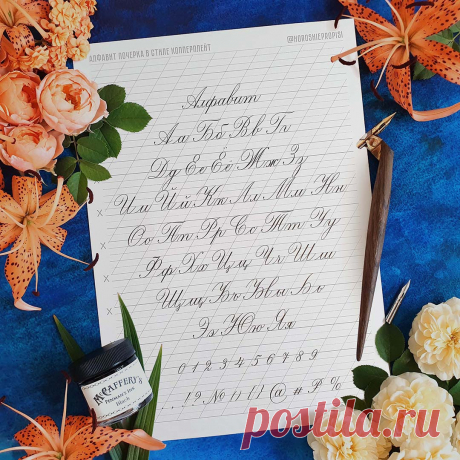 АЛФАВИТ ПОЧЕРКА В СТИЛЕ КОППЕРПЛЕЙТ
@HOROSHIEPROPISI
Алфавит
Аа Бб Вв Гг
Дд Ее Ёё Жж Зз
Ии Йй Кк Лл Мм Нн
Оо Пп Рр Сс Тт Уу
Фф Хх Цц Чч Шш
Щщ Ъъ Ыы Ьь
Ээ Юю Яя
0 1 2 3 4 5 6 7 8 9
. , ! ? № ( ) @ # ₽ %
McCAFFERY'S
Black
postila.ru